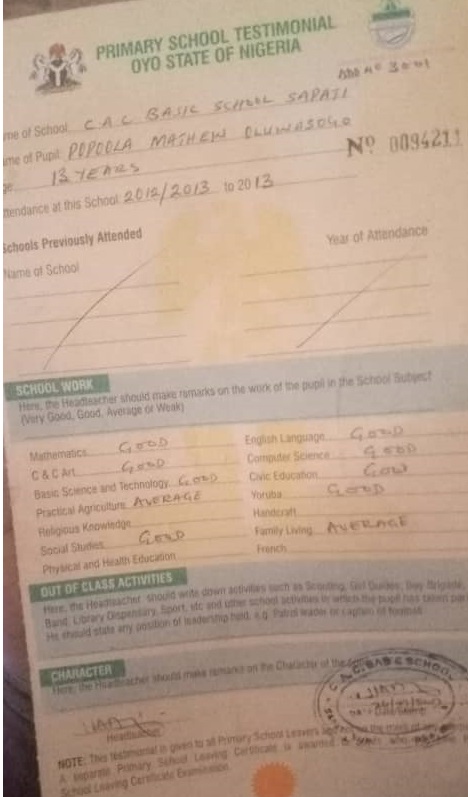 PRIMARY SCHOOL TESTIMONIAL
OYO STATE OF NIGERIA
3001
me of School: C.A.C BASIC SCHOOL SAPATI
me of Pupil: POPOOLA MATHEW OLUWASOGO
Nº 0094211
ge 13 YEARS
ttendance at this School: 2012/2013 to 2013
Schools Previously Attended
Year of Attendance
Name of School
SCHOOL WORK
Here, the Headteacher should make remarks on the work of the pupil in the School Subject
(Very Good, Good, Average or Weak)
Mathematics GOOD English Language GOOD
C & C Art GOOD Computer Science GOOD
Basic Science and Technology GOOD Civic Education GOOD
Practical Agriculture AVERAGE Yoruba GOOD
Religious Knowledge Handcraft
Social Studies GOOD Family Living AVERAGE
Physical and Health Education French
OUT OF CLASS ACTIVITIES
Here, the Headteacher should write down activities such as Scouting, Girl Guides, Boy Brigade,
Band, Library Dispensary, Sport, etc and other school activities in which the pupil has taken par
He should state any position of leadership held, e.g. Patrol leader or captain of football
CHARACTER
Here, the Headteacher should make remarks on the Character of the
C.A.C. BASIC SCHOOL
Headteacher
NOTE: This testimonial is given to all Primary School Leavers
A separate Primary School Leaving Certificate is awarded
School Leaving Certificate Examination.